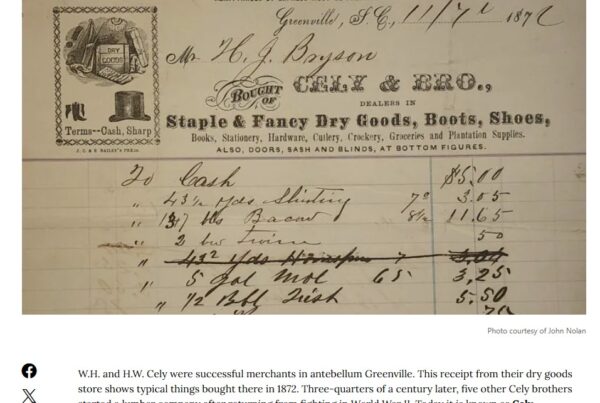 Greenville, S. C., 11/7 1872
Mr H. J. Bryson
DRY GOODS
BOUGHT OF CELY & BRO.,
DEALERS IN
Staple & Fancy Dry Goods, Boots, Shoes,
Terms--Cash, Sharp
Books, Stationery, Hardware, Cutlery, Crockery, Groceries and Plantation Supplies.
ALSO, DOORS, SASH AND BLINDS, AT BOTTOM FIGURES.
To Cash $5.00
" 43½ yds Shirting 7 3.05
" 137 lbs Bacon 8½ 11.65
" 2 Twine 50
" yds Homespun 7 3.04
" 5 gal Mol 65 3.25
" 1/2 Bbl Fish 5.50
Photo courtesy of John Nolan
W.H. and H.W. Cely were successful merchants in antebellum Greenville. This receipt from their dry goods
store shows typical things bought there in 1872. Three-quarters of a century later, five other Cely brothers
started a lumber company after returning from fighting in World War II. Today it is known as Cely